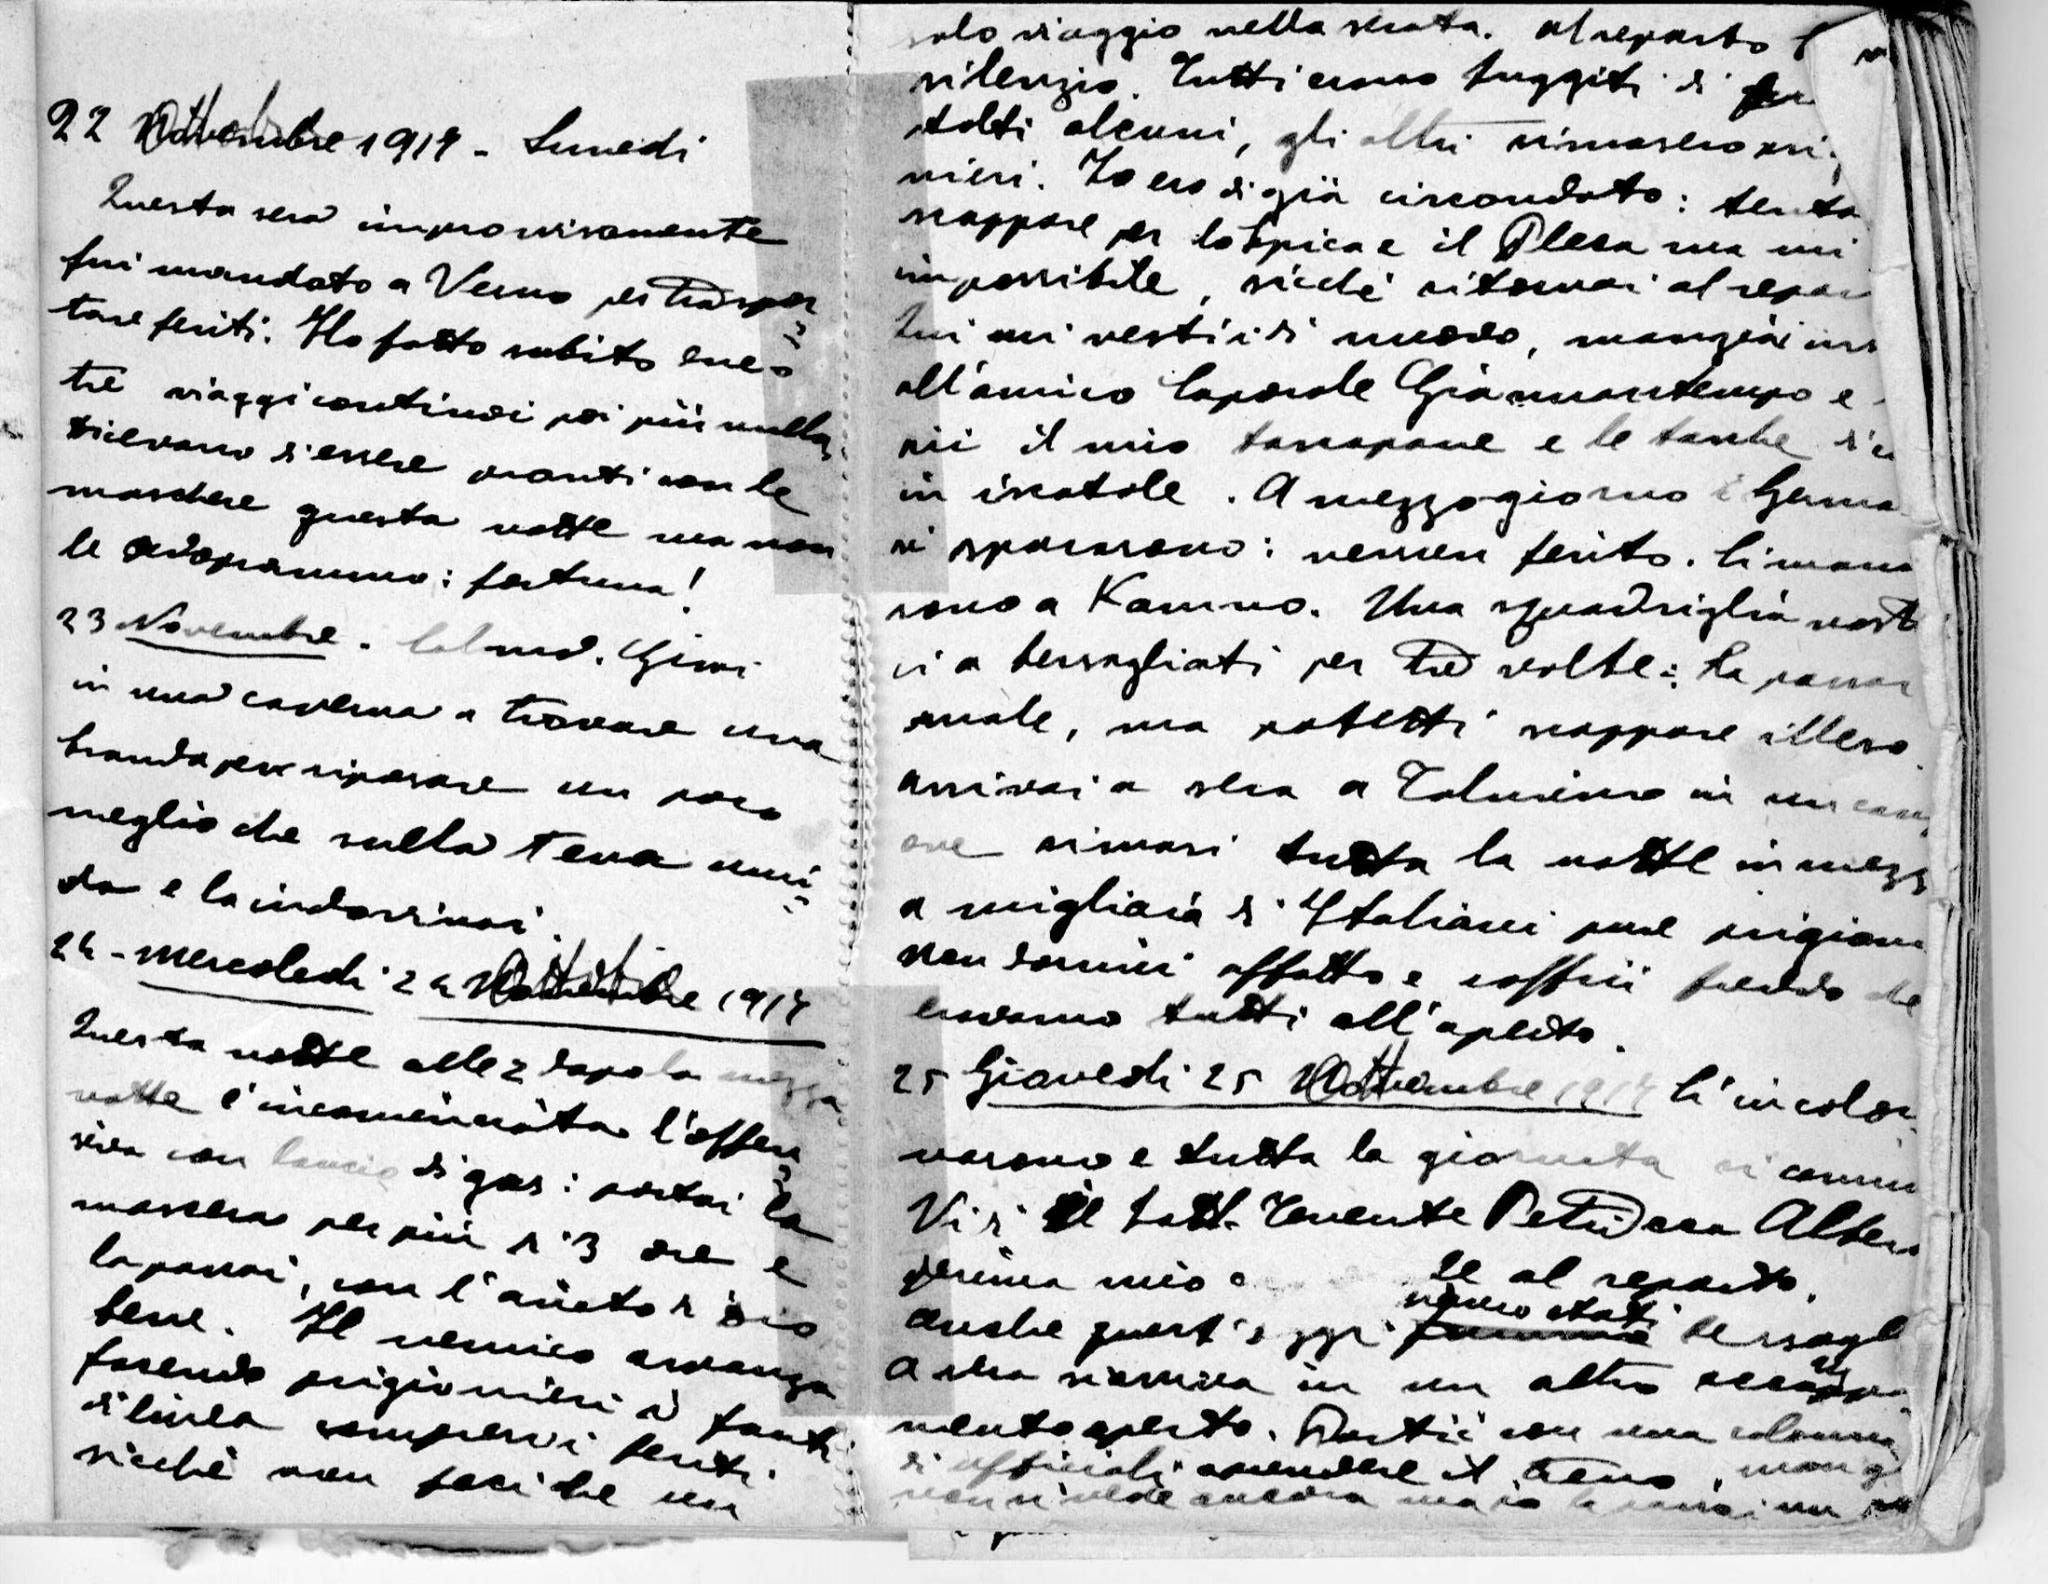 22 Ottobre 1917 - Lunedi
Questa sera improvvisamente
fui mandato a Verso per traspor
tare feriti. Ho fatto subito due o
tre viaggi continui poi più nulla
dicevano d'essere pronti con le
maschere questa notte ma non
le adoprammo: fortuna!
23 Novembre. Girai
in una caverna a trovare una
branda per riposare un poco
meglio che sulla terra umi=
da e la indovinai.
24 - mercoledi 24 Ottobre 1917
Questa notte alle 2 dopo la mezza
notte è incominciata l'offen
siva con lancio di gas: portai la
maschera per più di 3 ore e
la passai, con l'aiuto di Dio
bene. Il nemico avanza
facendo prigionieri i fanti
di linea compresi i feriti
sicchè non feci che un
solo viaggio nella serata. Al reparto
silenzio. Tutti erano fuggiti di
stolti alcuni, gli altri rimasero pri
nieri. Io ero di già circondato: tentai
scappare per lo Spica e il Plesa ma mi
impossibile, sicchè ritornai al repar
Qui mi vestii di nuovo, mangiai ins
all'amico Caporale Giammantempo e
pii il mio tascapane e le tasche di c
in iscatole. A mezzogiorno i Germa
ci spararono: nessun ferito. Ci mana
rono a Kamno. Una squadriglia nost
ci a bersagliati per tre volte: la passai
male, ma potetti scappare illeso.
arrivai a sera a Tolmino in un cam
ove rimasi tutta la notte in mezz
a migliaia di Italiani pure prigioni
non dormii affatto e soffrii freddo che
eravamo tutti all'aperto.
25 Giovedi 25 Ottobre 1917 Ci incolon
narono e tutta la giornata si cammi
Vidi il Sott. Tenente Petrocca Alber
prima mio le al reparto.
anche quest'oggi siamo stati bersagl
A sera si arriva in un altro accampa
mento aperto. Partii con una colonna
di ufficiali a prendere il treno. mang
non si vede ancora ma io la passai un